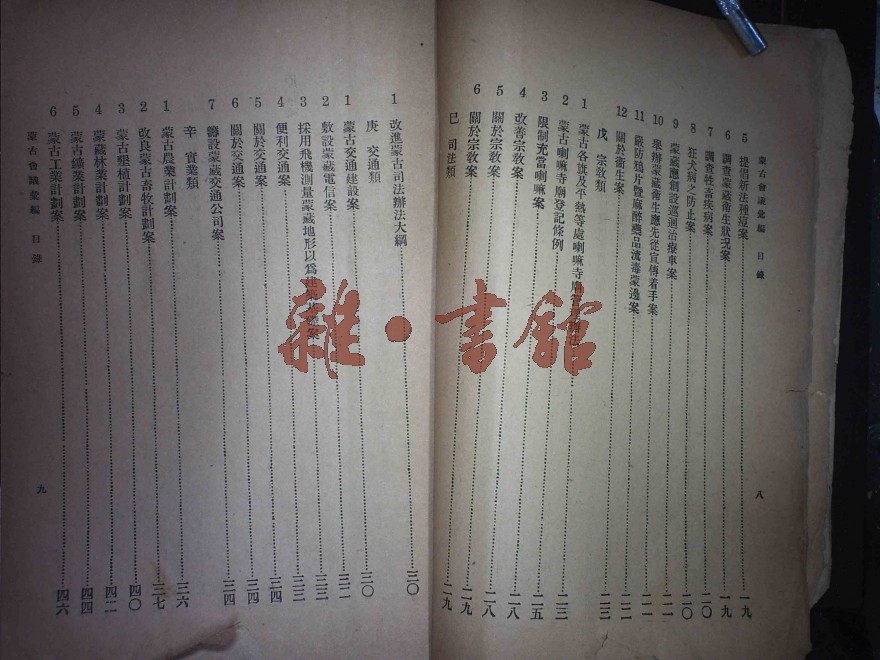 蒙古會議彙編 目錄
5 提倡新法種痘案 一九
6 調查蒙藏衛生狀況案 一九
7 調查牲畜疾病案 二〇
8 狂犬病之防止案 二〇
9 蒙藏應創設巡迴治療車案 二一
10 舉辦蒙藏衛生應先從宣傳着手案 二一
11 嚴防鴉片暨麻醉藥品流毒蒙邊案 二二
12 關於衛生案 二二
戊 宗敎類 二三
1 蒙古各旗及平熱等處喇嘛寺廟
2 蒙古喇嘛寺廟登記條例 二三
3 限制充當喇嘛案 二五
4 改善宗敎案 二八
5 關於宗敎案 二八
6 關於宗敎案 二九
巳 司法類 二九
八
1 改進蒙古司法辦法大綱 三〇
庚 交通類 三〇
1 蒙古交通建設案 三二
2 敷設蒙藏電信案 三三
3 採用飛機測量蒙藏地形以爲 三三
4 便利交通案 三四
5 關於交通案 三四
6 關於交通案 三四
7 籌設蒙藏交通公司案 三四
辛 實業類 三六
1 蒙古農業計劃案 三七
2 改良蒙古畜牧計劃案 四〇
3 蒙古墾植計劃案 四二
4 蒙藏林業計劃案 四四
5 蒙古鑛業計劃案 四四
6 蒙古工業計劃案 四六
蒙古會議彙編 目錄
九
雜·書館